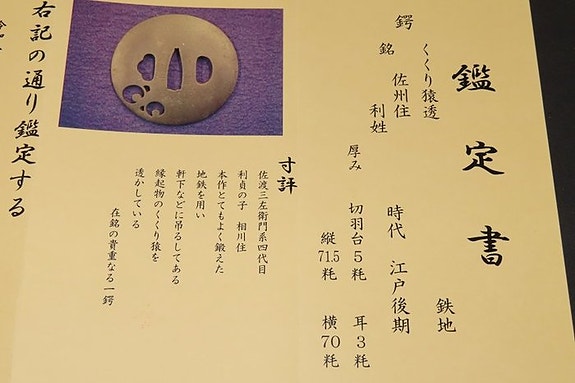 鑑定書
くくり猿透 鉄地
鍔
銘 佐州住 時代 江戸後期
利姓
厚み 切羽台5粍 耳3粍
縦71.5粍 横70粍
寸評
佐渡三左衛門系四代目
利貞の子 相川住
本作とてもよく鍛えた
地鉄を用い
軒下などに吊るしてある
縁起物のくくり猿を
透かしている
在銘の貴重なる一鍔
右記の通り鑑定する